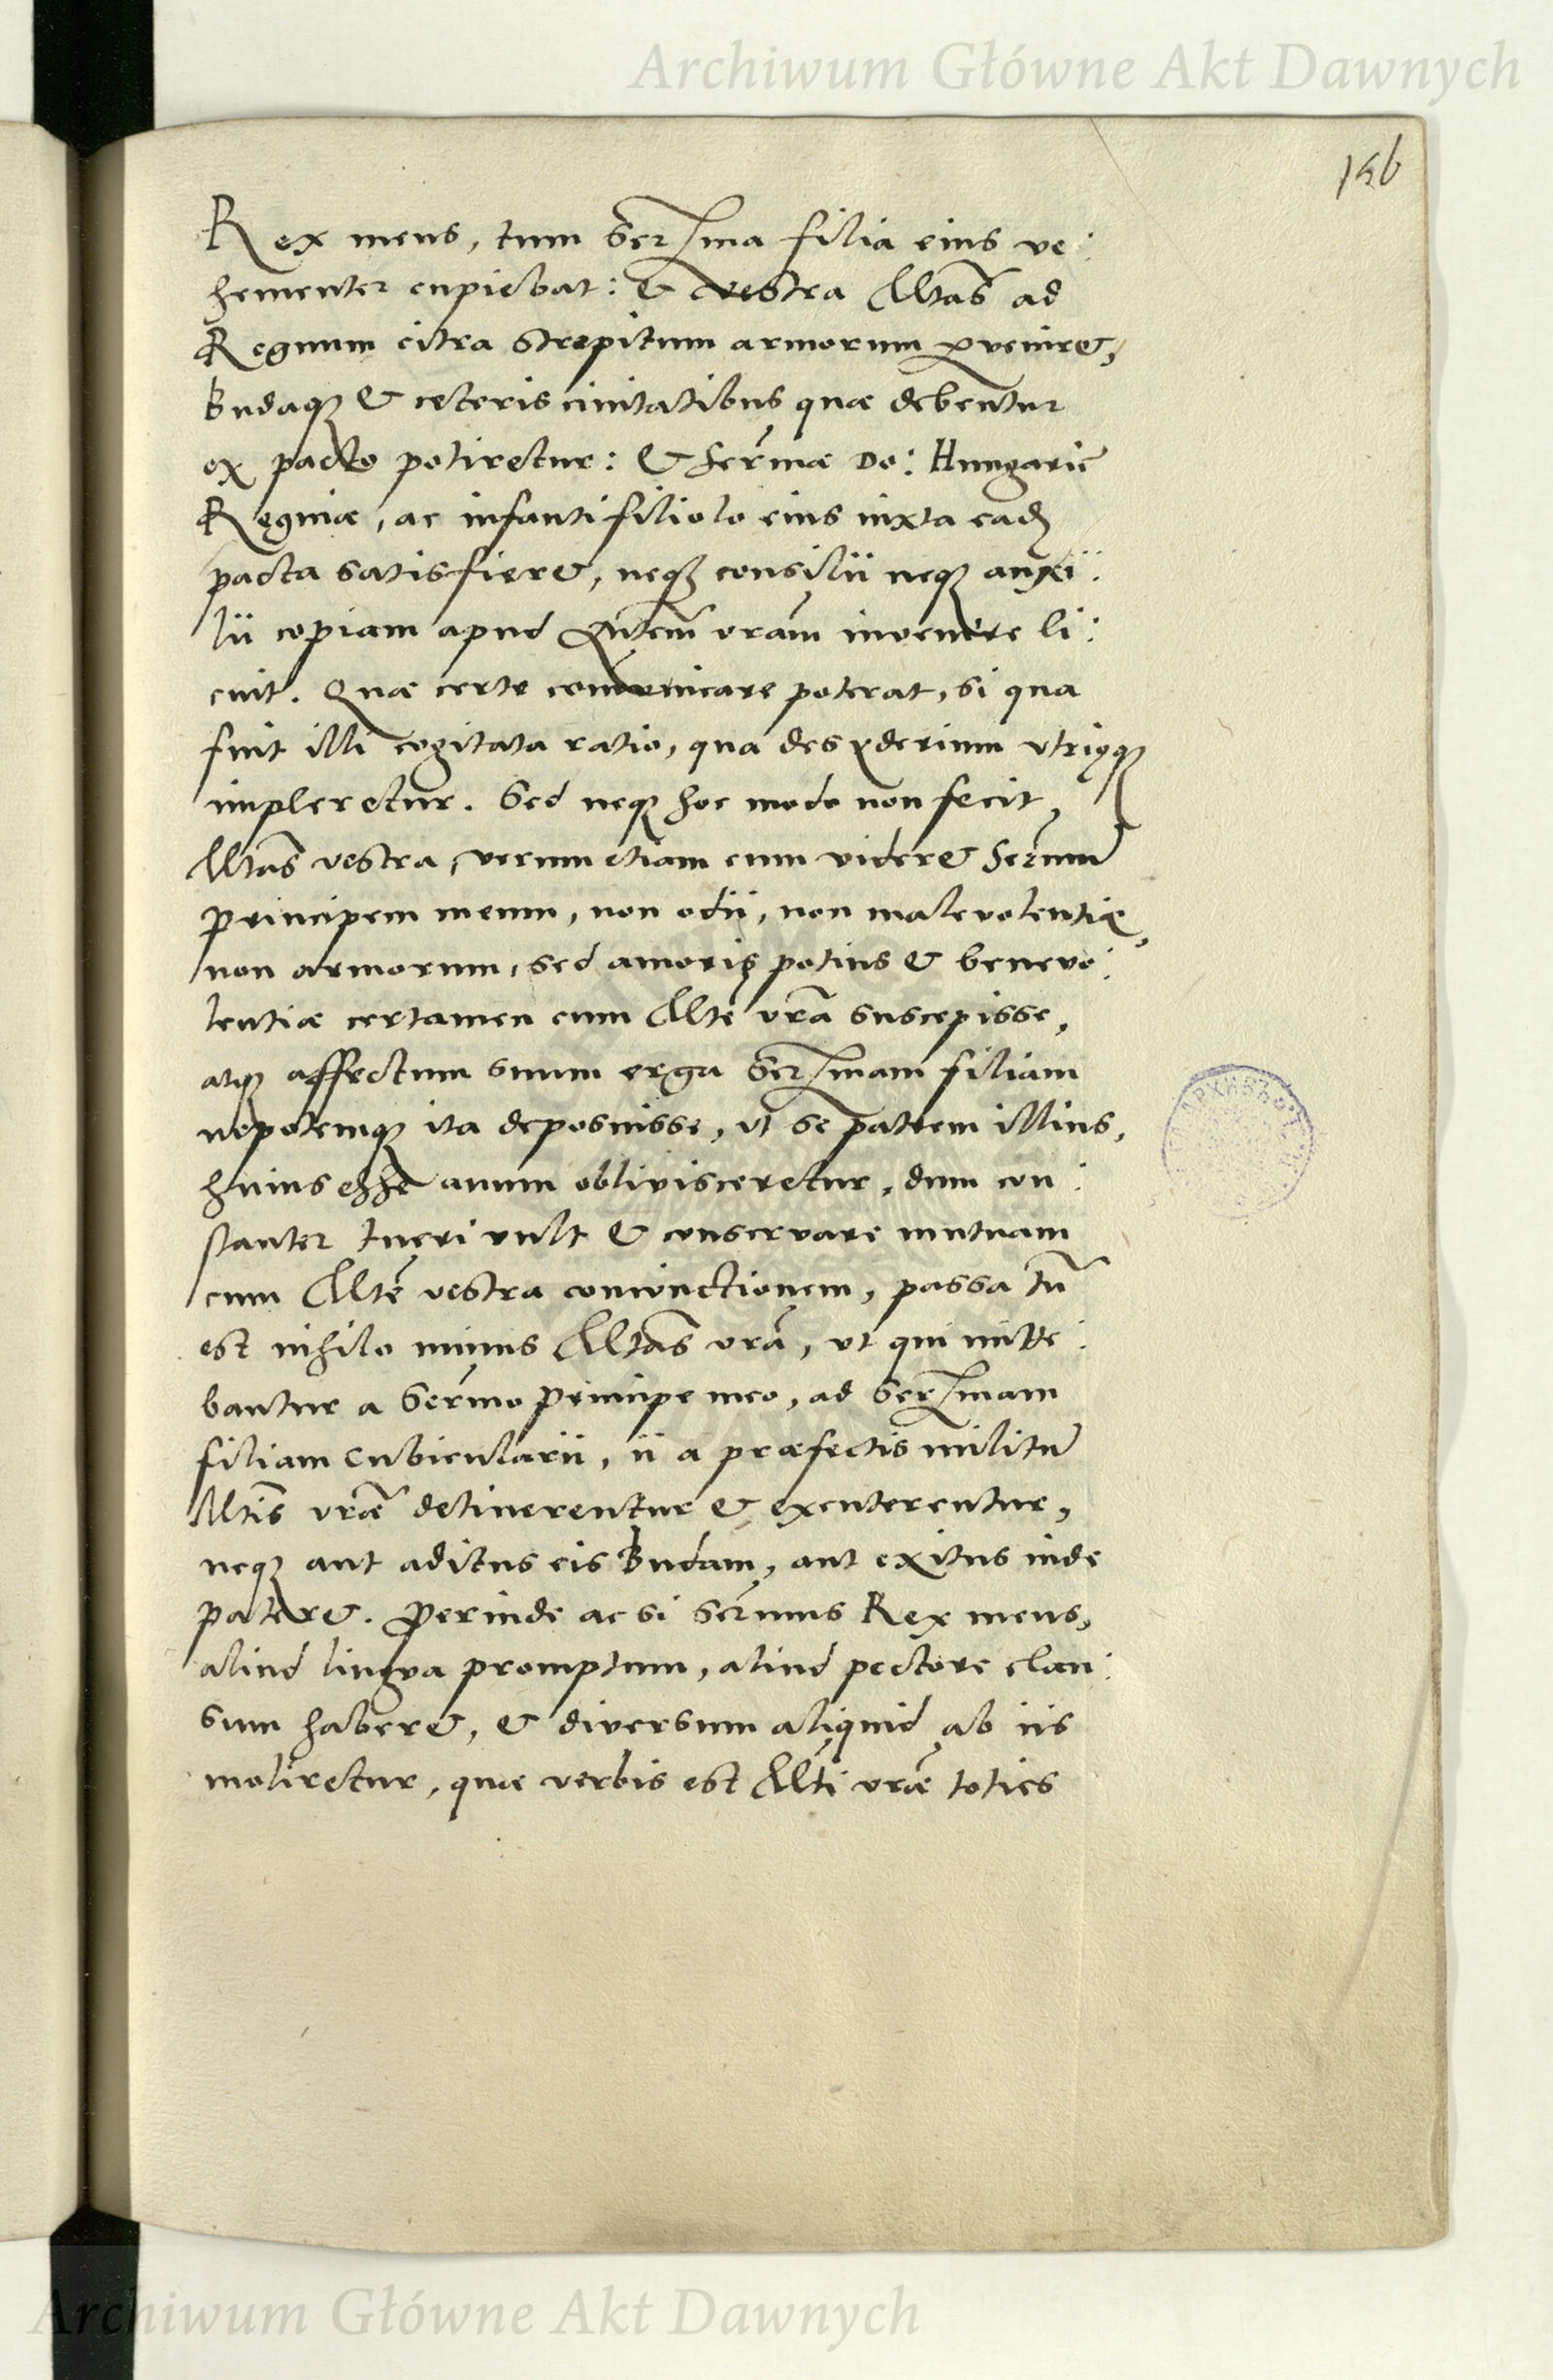 Archiwum Główne Akt Dawnych
156
Rex meus, tum Serma filia eius ve:
hementer cupiebat: & vestra Mtas ad
Regnum citra strepitum armorum perveniret,
Budaq; & ceteris civitatibus quae debentur
ex pacto potiretur: & Sermae Do: Hungarie
Reginae, ac infanti filiolo eius iuxta eadē
pacta satisfieret, neq; consilii neq; auxi:
lii copiam apud Mtem vram invenire li:
cuit. Quae certe comunicare poterat, si qua
fuit illi cogitata ratio, qua desyderium utriq;
impleretur. Sed neq; hoc modo non fecit
Mtas vestra, verum etiam cum videret Sermū
principem meum, non odii, non malevolentiae,
non armorum, sed amoris potius & benevo:
lentiae certamen cum Mte vra suscepisse,
atq; affectum suum erga Sermam filiam
nepotemq; ita deposuisse, ut se patrem illius,
huius esse avum oblivisceretur, dum con:
stanter tueri vult & conservare mutuam
cum Mte vestra coniunctionem, passa tn̄
est nihilo minus Mtas vra, ut qui mitte:
bantur a Sermo principe meo, ad Sermam
filiam cubicularii, ii a praefectis militū
Mtis vrae detinerentur & excuterentur,
neq; aut aditus eis Budam, aut exitus inde
pateret. Perinde ac si Sermus Rex meus,
aliud lingva promptum, aliud pectore clau:
sum haberet, & diversum aliquid ab iis
moliretur, quae verbis est Mti vrae toties
Archiwum Główne Akt Dawnych